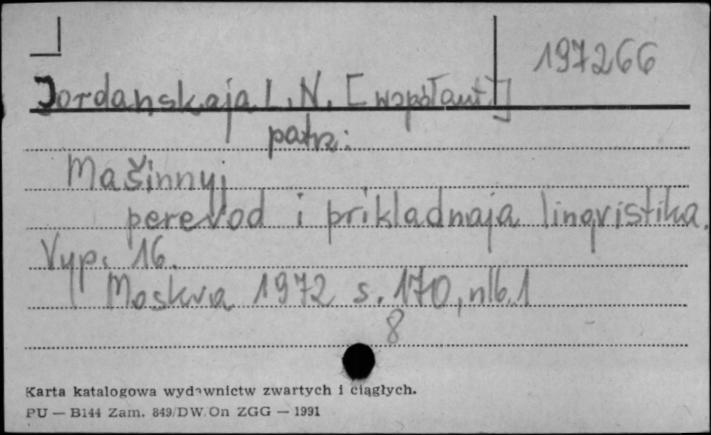 197266
Jordanskaja L. N. [współaut.]
patrz:
Mašinnyj
perevod i prikladnaja lingvistika.
Vyp. 16.
Moskva 1972 s. 170, nlb. 1
8
Karta katalogowa wydawnictw zwartych i ciągłych.
PU — B144 Zam. 849/DW/On ZGG — 1991